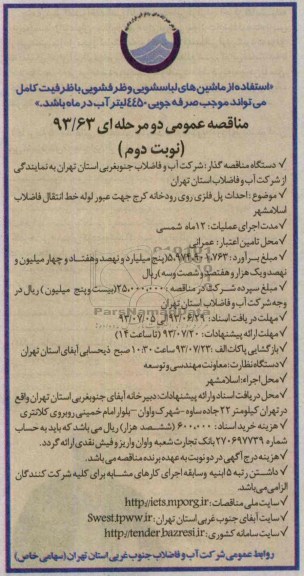 «استفاده از ماشین های لباسشویی و ظرفشویی با ظرفیت کامل
می تواند موجب صرفه جویی ۴۴۵۰ لیتر آب در ماه باشد.»
مناقصه عمومی دو مرحله ای ۹۳/۶۳
(نوبت دوم)
✓ دستگاه مناقصه گذار: شرکت آب و فاضلاب جنوبغربی استان تهران به نمایندگی
از شرکت آب و فاضلاب استان تهران
✓ موضوع: احداث پل فلزی روی رودخانه کرج جهت عبور لوله خط انتقال فاضلاب
اسلامشهر
✓ مدت اجرای عملیات: ۱۲ ماه شمسی
✓ محل تامین اعتبار: عمرانی
✓ مبلغ برآورد: (پنج میلیارد و نهصد و هفتاد و چهار میلیون و
نهصد و یک هزار و هفتصد و شصت و سه) ریال
✓ مبلغ سپرده شرکت در مناقصه: ۲۵,۰۰۰,۰۰۰ (بیست و پنج میلیون) ریال در
وجه شرکت آب و فاضلاب استان تهران
✓ مهلت دریافت اسناد: ۹۳/۰۶/۲۹ الی ۹۳/۰۷/۰۵
✓ مهلت ارائه پیشنهادات: ۹۳/۰۷/۲۰ (تا ساعت ۱۴)
✓ بازگشایی پاکات الف: ۹۳/۰۷/۲۳ ساعت ۱۰:۳۰ صبح ذیحسابی آبفای استان تهران
✓ دستگاه نظارت: معاونت مهندسی و توسعه
✓ محل اجراء: اسلامشهر
✓ محل دریافت اسناد و ارائه پیشنهادات: دبیرخانه آبفای جنوبغربی استان تهران واقع
در تهران کیلومتر ۲۲ جاده ساوه - شهرک واوان - بلوار امام خمینی روبروی کلانتری
✓ هزینه خرید اسناد: ۶۰۰,۰۰۰ (ششصد هزار) ریال می باشد که باید به حساب
شماره ۲۷۰۶۹۷۷۳۹ بانک تجارت شعبه واوان واریز و فیش نقدی ارائه گردد.
✓ هزینه درج آگهی در دو نوبت به عهده برنده مناقصه می باشد.
✓ داشتن رتبه ۵ ابنیه و سابقه اجرای کارهای مشابه برای کلیه شرکت کنندگان
الزامی می باشد.
✓ سایت ملی مناقصات: http://iets.mporg.ir
✓ سایت آبفای جنوب غربی استان تهران: Swest.tpww.ir
✓ سایت سامانه کشوری: http://tender.bazresi.ir
روابط عمومی شرکت آب و فاضلاب جنوب غربی استان تهران (سهامی خاص)